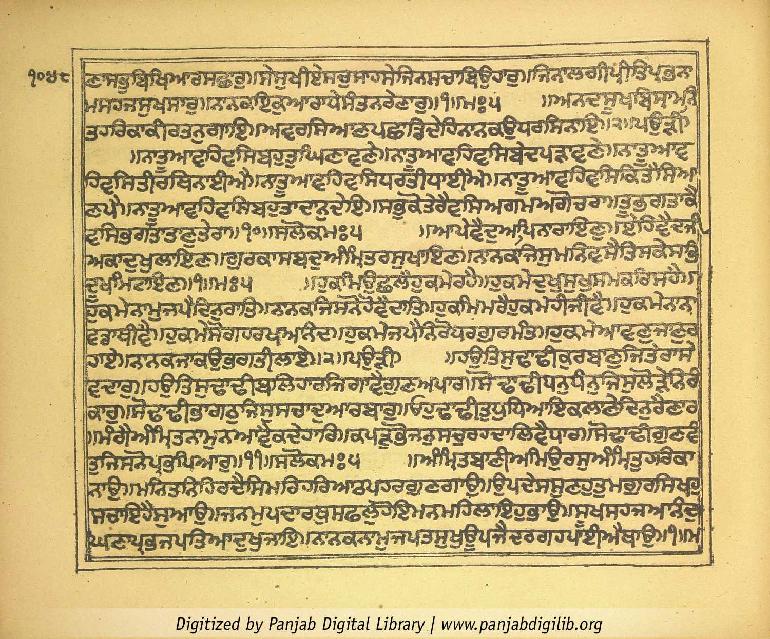 ਣਾਸਭੁਬਿਖਿਆਰਸਛਾਰੁ॥ਸੇਸੁਖੀਏਸਚੁਸਾਹਸੇਜਿਨਸਚਾਬਿਉਹਾਰੁ॥ਜਿਨਾਲਗੀਪ੍ਰੀਤਿਪ੍ਰਭਨਾ
੧੦੪੮
ਮਸਹਜਸੁਖਸਾਰੁ॥ਨਾਨਕਇਕੁਆਰਾਧੇਸੰਤਨਰੇਣਾਰੁ॥੧॥ਮਃ੫ ॥ਅਨਦਸੂਖਬਿਸ੍ਰਾਮਨਿ
ਤਹਰਿਕਾਕੀਰਤਨੁਗਾਇ॥ਅਵਰਸਿਆਣਪਛਾਡਿਦੇਹਿਨਾਨਕਉਧਰਸਿਨਾਇ॥੨॥ਪਉੜੀ
॥ਨਾਤੂਆਵਹਿਵਸਿਬਹੁਤੁਘਿਣਾਵਣੇ॥ਨਾਤੂਆਵਹਿਵਸਿਬੇਦਪੜਾਵਣੇ॥ਨਾਤੂਆਵ
ਹਿਵਸਿਤੀਰਥਿਨਾਈਐ॥ਨਾਤੂਆਵਹਿਵਸਿਧਰਤੀਧਾਈਐ॥ਨਾਤੂਆਵਹਿਵਸਿਕਿਤੈਸਿਆ
ਣਪੈ॥ਨਾਤੂਆਵਹਿਵਸਿਬਹੁਤਾਦਾਨੁਦੇਇ॥ਸਭੁਕੋਤੇਰੈਵਸਿਅਗਮਅਗੋਚਰਾ॥ਤੂਭਗਤਾਕੈ
ਵਸਿਭਗਤਾਤਾਣੁਤੇਰਾ॥੧੦॥ਸਲੋਕਮਃ੫ ॥ਆਪੇਵੈਦੁਆਪਿਨਾਰਾਇਣੁ॥ਏਹਿਵੈਦਜੀ
ਅਕਾਦੁਖੁਲਾਇਣ॥ਗੁਰਕਾਸਬਦੁਅੰਮ੍ਰਿਤਰਸੁਖਾਇਣ॥ਨਾਨਕਜਿਸੁਮਨਿਵਸੈਤਿਸਕੇਸਭਿ
ਦੂਖਮਿਟਾਇਣ॥੧॥ਮਃ੫ ॥ਹੁਕਮਿਉਛਲੈਹੁਕਮੇਰਹੈ॥ਹੁਕਮੇਦੁਖੁਸੁਖੁਸਮਕਰਿਸਹੈ॥
ਹੁਕਮੇਨਾਮੁਜਪੈਦਿਨੁਰਾਤਿ॥ਨਾਨਕਜਿਸਨੋਹੋਵੈਦਾਤਿ॥ਹੁਕਮਿਮਰੈਹੁਕਮੇਹੀਜੀਵੈ॥ਹੁਕਮੇਨਾਨਾ
ਵਡਾਥੀਵੈ॥ਹੁਕਮੇਸੋਗਹਰਖਆਨੰਦ॥ਹੁਕਮੇਜਪੈਨਿਰੋਧਰਗੁਰਮੰਤ॥ਹੁਕਮੇਆਵਣੁਜਾਣੁਰ
ਹਾਏ॥ਨਾਨਕਜਾਕਉਭਗਤੀਲਾਏ॥੨॥ਪਉੜੀ ॥ਹਉਤਿਸੁਢਾਢੀਕੁਰਬਾਣੁਜਿਤੇਰਾਸੇ
ਵਦਾਰੁ॥ਹਉਤਿਸੁਢਾਢੀਬਲਿਹਾਰਜਿਗਾਵੈਗੁਣਅਪਾਰ॥ਸੋਢਾਢੀਧਨੁਧੰਨੁਜਿਸੁਲੋੜੇਨਿਰੰ
ਕਾਰੁ॥ਸੋਢਾਢੀਭਾਗਠੁਜਿਸੁਸਚਾਦੁਆਰਬਾਰੁ॥ਓਹੁਢਾਢੀਤੁਧੁਧਿਆਇਕਲਾਣੇਦਿਨੁਰੈਣਾਰ
॥ਮੰਗੈਅੰਮ੍ਰਿਤਨਾਮੁਨਆਵੈਕਦੇਹਾਰਿ॥ਕਪੜੁਭੋਜਨੁਸਚੁਰਹਦਾਲਿਵੈਧਾਰ॥ਸੋਢਾਢੀਗੁਣਵੰ
ਤੁਜਿਸਨੋਪ੍ਰਭਪਿਆਰੁ॥੧੧॥ਸਲੋਕਮਃ੫ ॥ਅੰਮ੍ਰਿਤਬਾਣੀਅਮਿਉਰਸੁਅੰਮ੍ਰਿਤੁਹਰਿਕਾ
ਨਾਉ॥ਮਨਿਤਨਿਹਿਰਦੈਸਿਮਰਿਹਰਿਆਠਪਹਰਗੁਣਗਾਉ॥ਉਪਦੇਸੁਸੁਣਹੁਤੁਮਗੁਰਸਿਖਹੁ
ਸਚਾਇਹੈਸੁਆਉ॥ਜਨਮੁਪਦਾਰਥੁਸਫਲੁਹੋਇਮਨਮਹਿਲਾਇਹੁਭਾਉ॥ਸੂਖਸਹਜਆਨੰਦੁ
ਘਣਾਪ੍ਰਭਜਪਤਿਆਦੁਖੁਜਾਇ॥ਨਾਨਕਨਾਮੁਜਪਤਸੁਖੁਊਪਜੈਦਰਗਹਪਾਈਐਥਾਉ॥੧॥ਮ
Digitized by Panjab Digital Library | www.panjabdigilib.org